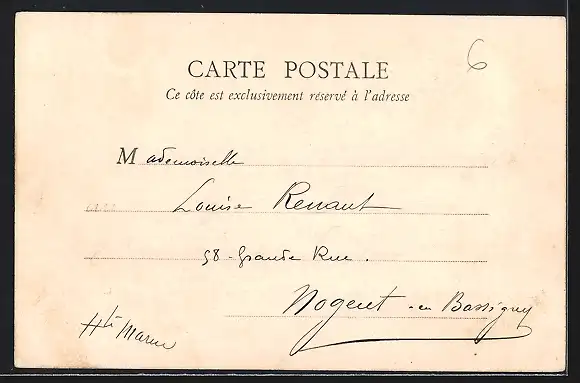 6
CARTE POSTALE
Ce côte est exclusivement réservé à l'adresse
Mademoiselle
Louise Renaut
58 - Grande Rue.
Nogent - en Bassigny
Hte Marne